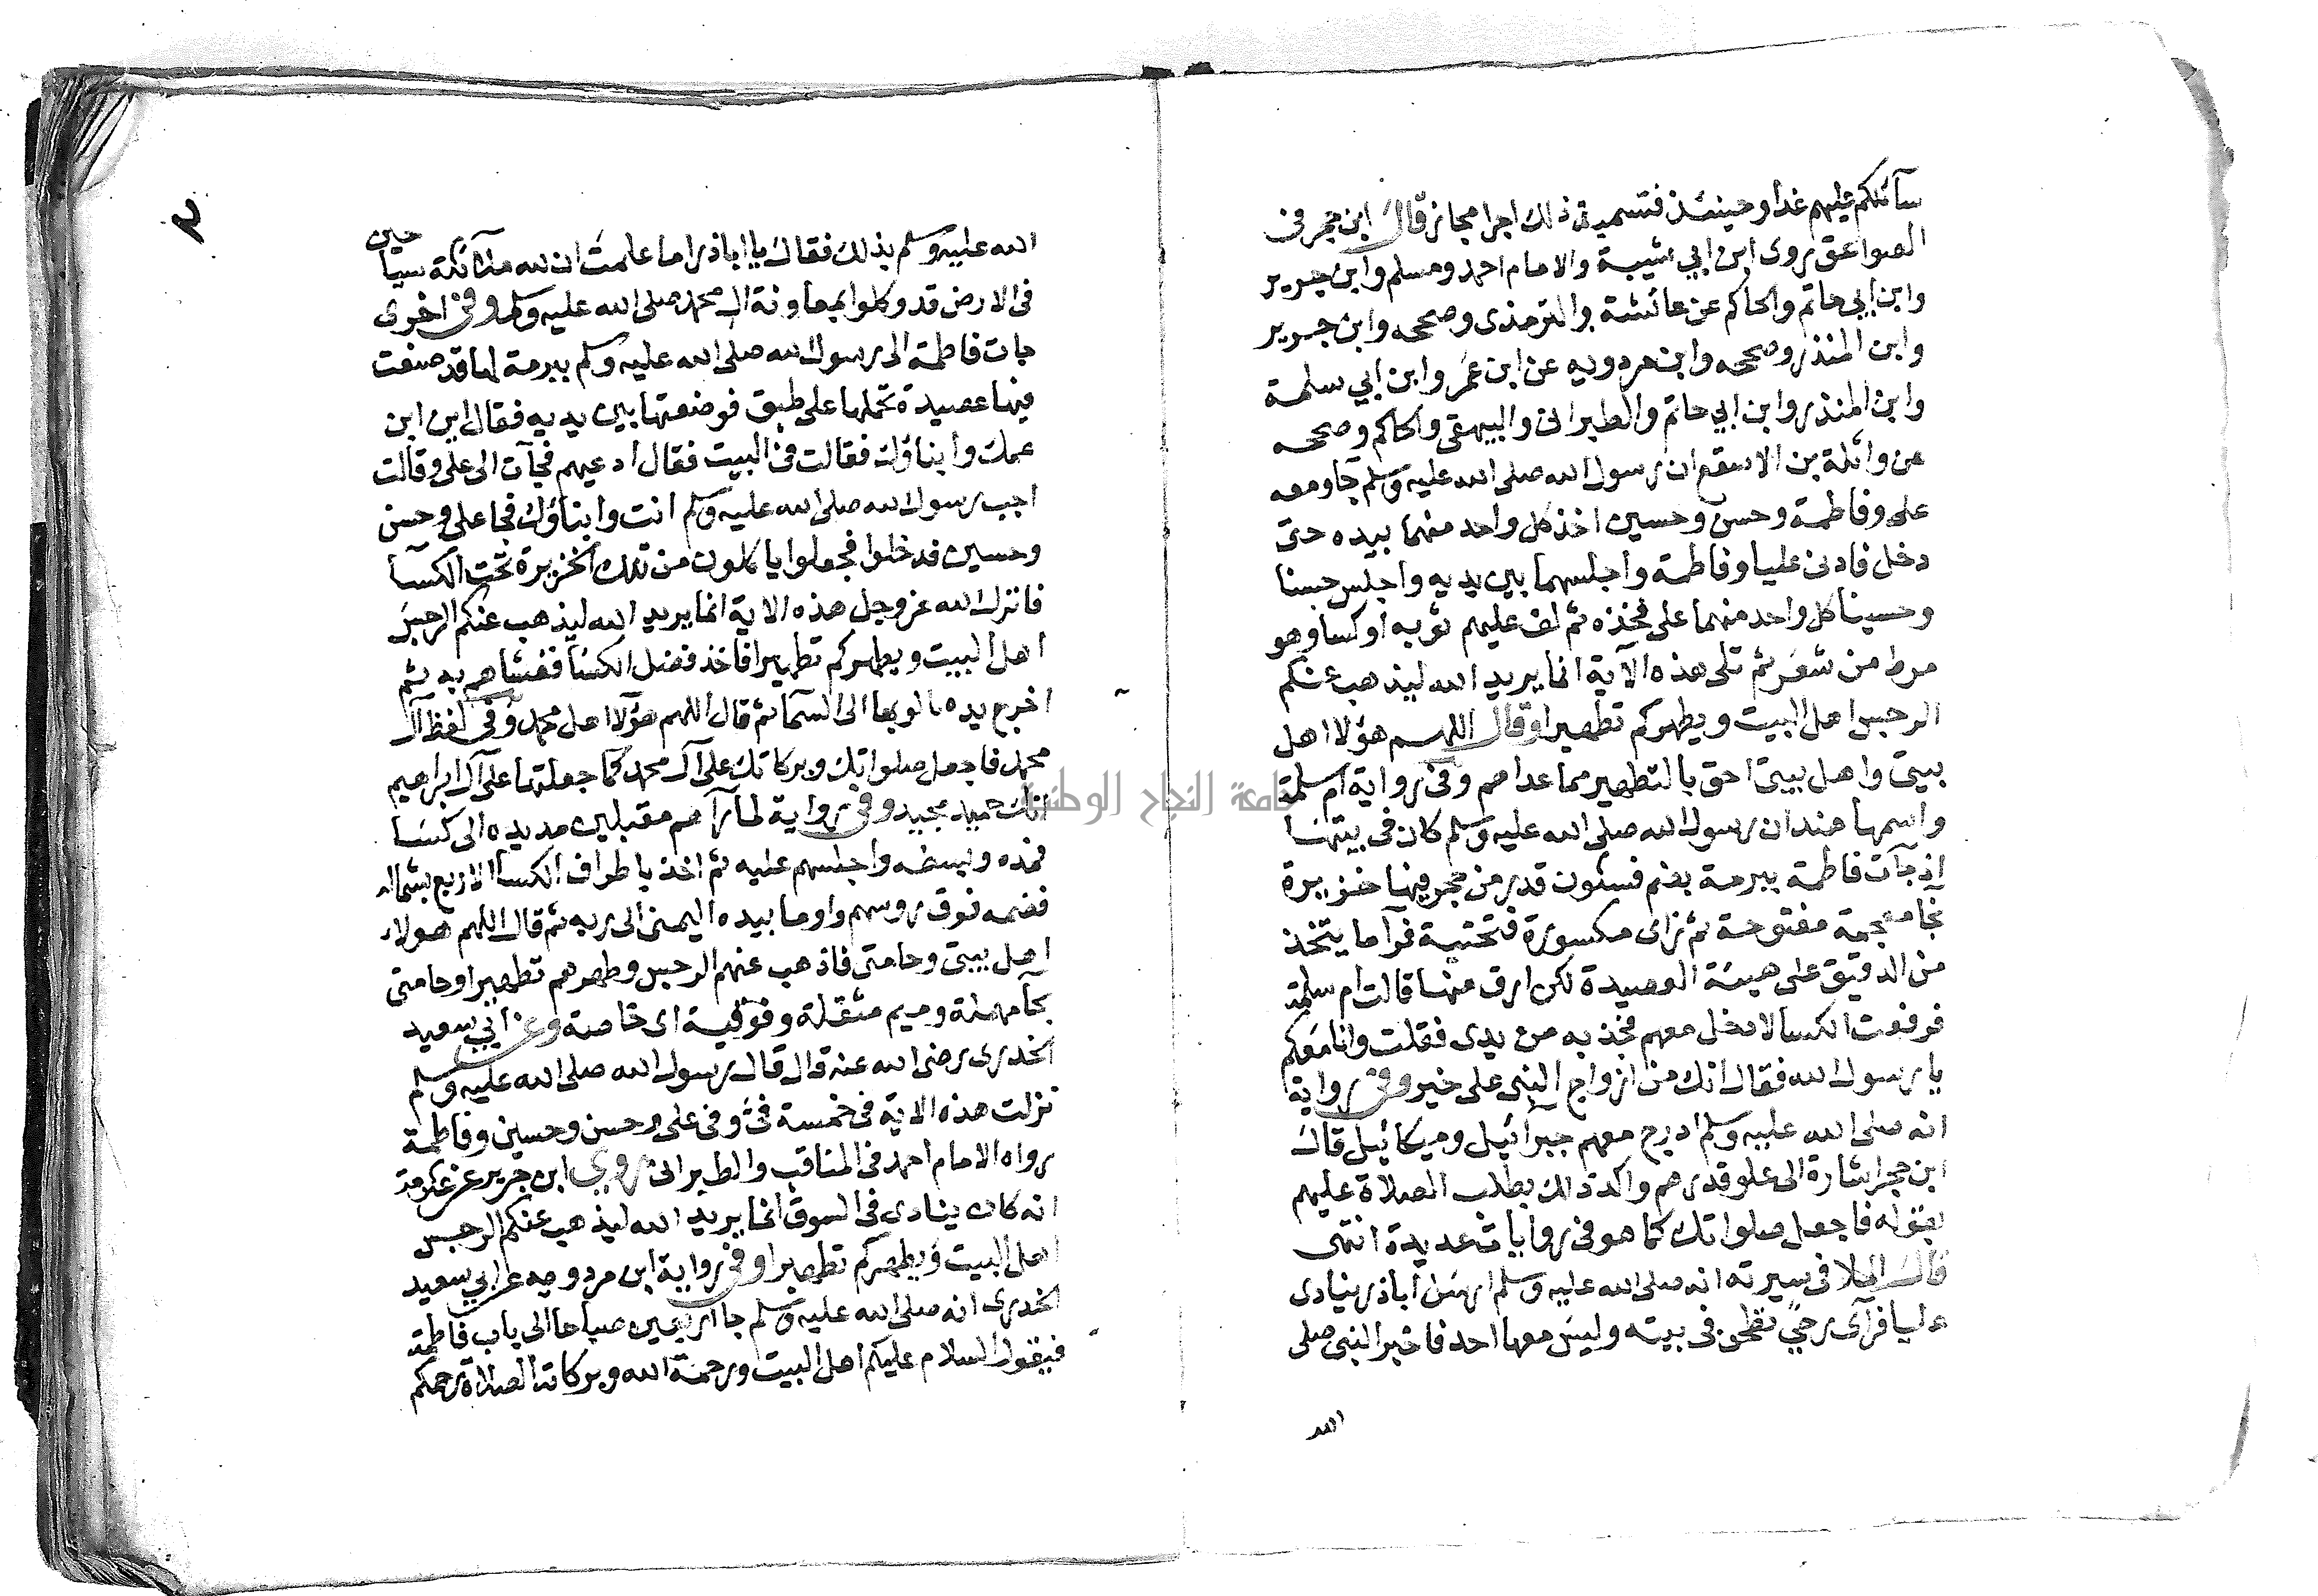 سآئلكم عليهم غدا وحينئذ فتسميته ذلك اجرا مجاز قال ابن حجر فى
الصواعق روى ابن ابي شيبة والامام احمد ومسلم وابن جرير
وابن ابي حاتم والحاكم عن عائشة والترمذى وصححه وابن جرير
وابن المنذر وصححه وابن مردويه عن ابن عمر وابن ابي سلمة
وابن المنذر وابن ابي حاتم والطبرانى والبيهقى والحاكم وصححه
عن واثلة بن الاسقع ان رسول الله صلى الله عليه وسلم جآ ومعه
على وفاطمة وحسن وحسين اخذ كل واحد منهما بيده حتى
دخل فادنى عليا وفاطمة واجلسهما بين يديه واجلس حسنا
وحسينا كل واحد منهما على فخذه ثم لف عليهم ثوبه او كسا وهو
مرط من شعر ثم تلى هذه الآية انما يريد الله ليذهب عنكم
الرجس اهل البيت ويطهركم تطهيرا وقال اللهم هؤلا اهل
بيتى واهل بيتى احق بالتطهير مما عداهم وفى رواية ام سلمة
واسمها هند ان رسول الله صلى الله عليه وسلم كان فى بيتها
اذ جآت فاطمة ببرمة بضم فسكون قدر من حجر فيها خزيرة
بخا معجمة مفتوحة ثم زاى مكسورة فتحتية فرآ ما يتخذ
من الدقيق على هيئة العصيدة لكن ارق منها قالت ام سلمة
فرفعت الكسا لادخل معهم فجذبه من يدى فقلت وانا معكم
يا رسول الله فقال انك من ازواج النبى على خير وفى رواية
انه صلى الله عليه وسلم ادرج معهم جبرائيل وميكائيل قال
ابن حجر اشارة الى علو قدرهم واكد ذلك بطلب الصلاة عليهم
بقوله فاجعل صلواتك كما هو فى روايات عديدة انتهى
قال الملا فى سيرته انه صلى الله عليه وسلم ارسل أباذر ينادى
عليا فرآى رحي تطحن فى بيته وليس معها احد فاخبر النبى صلى
الله
٣
الله عليه وسلم بذلك فقال يا اباذر اما علمت ان لله ملآئكة سيا
حين
فى الارض قد وكلوا بمعاونة ال محمد صلى الله عليه وسلم وفى اخرى
جات فاطمة الى رسول الله صلى الله عليه وسلم ببرمة لها قد صنعت
فيها عصيدة تحملها على طبق فوضعتها بين يديه فقال اين ابن
عمك وابناؤك فقالت فى البيت فقال ادعيهم فجآت الى على وقالت
اجب رسول الله صلى الله عليه وسلم انت وابناؤك فجا على وحسن
وحسين فدخلوا فجعلوا ياكلون من تلك الخزيرة تحت الكسآ
فانزل الله عز وجل هذه الاية انما يريد الله ليذهب عنكم الرجس
اهل البيت ويطهركم تطهيرا فاخذ فضل الكسا فغشاهم به ثم
اخرج يده فالوى بها الى السما ثم قال اللهم هؤلا اهل محمد وفى لفظ آل
محمد فاجعل صلواتك وبركاتك على آل محمد كما جعلتها على آل ابراهيم
انك حميد مجيد وفى رواية لما رآهم مقبلين مد يده الى كسا
فمده وبسطه واجلسهم عليه ثم اخذ باطراف الكسا الاربع بشماله
فضمه فوق روسهم واوما بيده اليمنى الى ربه ثم قال اللهم هولاء
اهل بيتى وحامتى فاذهب عنهم الرجس وطهرهم تطهيرا وحامتى
بحآ مهملة وميم مثقلة وفوقية اى خاصة وعن ابي سعيد
الخدرى رضى الله عنه قال قال رسول الله صلى الله عليه وسلم
نزلت هذه الاية فى خمسة فىّ وفى على وحسن وحسين وفاطمة
رواه الامام احمد فى المناقب والطبرانى وروى ابن جرير عن عكرمة
انه كان ينادى فى السوق انما يريد الله ليذهب عنكم الرجس
اهل البيت ويطهركم تطهيرا وفى رواية ابن مردويه عن ابي سعيد
الخدرى انه صلى الله عليه وسلم جا اربعين صباحا الى باب فاطمة
فيقول السلام عليكم اهل البيت ورحمة الله وبركاته الصلاة يرحمكم
جامعة النجاح الوطنية